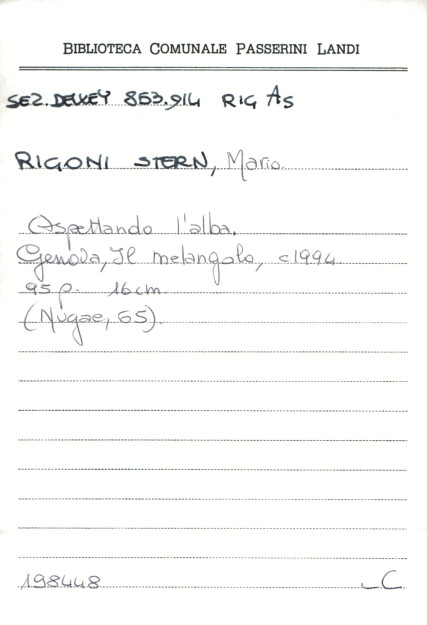 BIBLIOTECA COMUNALE PASSERINI LANDI
SEZ. DEWEY 853.914 RIG AS
RIGONI STERN, Mario
Aspettando l'alba.
Genova, Il melangolo, c1994.
95 p. 16 cm.
(Nugae, 65).
198448 _C